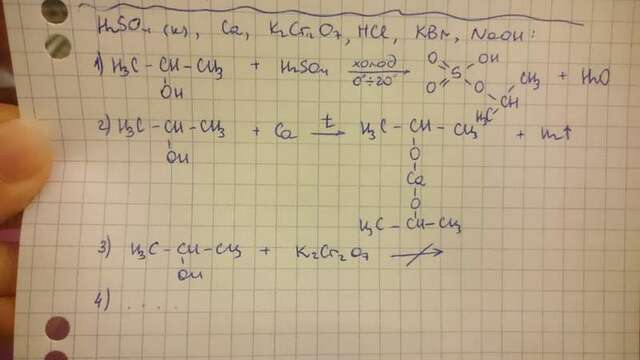 H₂SO₄ (к), Ca, K₂Cr₂O₇, HCl, KBr, NaOH:
1) H₃C – CH – CH₃ + H₂SO₄ холод 0°÷20° O O S OH O CH CH₃ H₃C + H₂O
OH
2) H₃C – CH – CH₃ + Ca t → H₃C – CH – CH₃ + H₂↑
OH O
Ca
O
H₃C – CH – CH₃
3) H₃C – CH – CH₃ + K₂Cr₂O₇ ↛
OH
4) . . . .